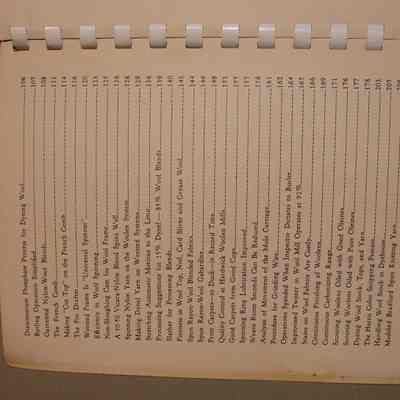 Diammonium Phosphate Process for Dyeing Wool 106
Burling Operation Simplified 107
Garnetted Nylon-Wool Blends 108
The French Comb 111
Making "Cut Top" on the French Comb 114
The Pin Drafter 116
Worsted Pem Is "Universal Spinner" 120
Efficiency in Wool Spinning 123
Non-Sloughing Cam for Wool Frame 125
A 50-50 Vicara-Nylon Blend Spins Well 126
Spinning Nylon Yarn on the Worsted System 128
Making Dynel Yarn on Worsted Systems 129
Stretching Automatic Motions to the Limit 136
Processing Suggestions for 15% Dynel—85% Wool Blends 139
Slasher for Woolen Blends 140
Fineness in Wool Top, Noil, Card Sliver and Grease Wool 141
Spun Rayon-Wool Blended Fabrics 144
Spun Rayon-Wool Gabardine 146
From Garnets to Spinning in Record Time 148
Quality Control at Hardwick Woolen Mills
Good Carpets from Good Cops
Spinning Ring Lubrication Improved 157
Waste from Mules Can Be Reduced
Analysis of Movement of the Mule Carriage
Procedure for Grinding Wire 161
Operations Speeded When Inspector Dictates to Burler 162
Improved Picker in Wool Mill Operates at 92% 164
Stains on Wool Fabrics Are Costly 165
Continuous Finishing of Woolens 166
Continuous Carbonizing Range 169
Scouring Woolens Oiled with Good Oleines 171
Scouring Woolens Oiled with Poor Oleines 176
Dyeing Wool Stock, Tops, and Yarn 177
The Harris Color Stripping Process 178
Handling Wool Stock in Dyehouse 203
Monkey Bradford Spun Knitting Yarn 207